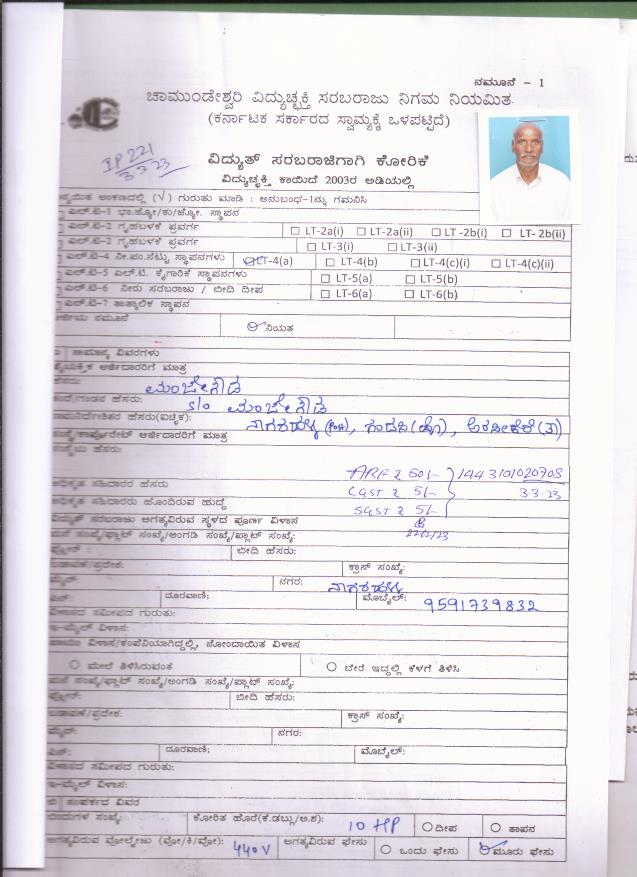 ನಮೂನೆ - 1
ಚಾಮುಂಡೇಶ್ವರಿ ವಿದ್ಯುಚ್ಛಕ್ತಿ ಸರಬರಾಜು ನಿಗಮ ನಿಯಮಿತ
(ಕರ್ನಾಟಕ ಸರ್ಕಾರದ ಸ್ವಾಮ್ಯಕ್ಕೆ ಒಳಪಟ್ಟಿದೆ)
IP 221
3-3-23
ವಿದ್ಯುತ್ ಸರಬರಾಜಿಗಾಗಿ ಕೋರಿಕೆ
ವಿದ್ಯುಚ್ಛಕ್ತಿ ಕಾಯಿದೆ 2003ರ ಅಡಿಯಲ್ಲಿ
ಅಂಕಣದಲ್ಲಿ (√) ಗುರುತು ಮಾಡಿ : ಅನುಬಂಧ-1ನ್ನು ಗಮನಿಸಿ
ಎಲ್.ಟಿ-1 ಭಾ.ಜ್ಯೋ/ಕು/ಜ್ಯೋ. ಸ್ಥಾಪನ
ಎಲ್.ಟಿ-2 ಗೃಹಬಳಕೆ ಪ್ರವರ್ಗ LT-2a(i) LT-2a(ii) LT -2b(i) LT- 2b(ii)
ಎಲ್.ಟಿ-2 ಗೃಹಬಳಕೆ ಪ್ರವರ್ಗ LT-3(i) LT-3(ii)
ಎಲ್.ಟಿ-4 ನೀ.ಪಂ.ಸೆಟ್ಟು ಸ್ಥಾಪನಗಳು LT-4(a) LT-4(b) LT-4(c)(i) LT-4(c)(ii)
ಎಲ್.ಟಿ-5 ಎಲ್.ಟಿ. ಕೈಗಾರಿಕೆ ಸ್ಥಾಪನಗಳು LT-5(a) LT-5(b)
ಎಲ್.ಟಿ-6 ನೀರು ಸರಬರಾಜು / ಬೀದಿ ದೀಪ LT-6(a) LT-6(b)
ಎಲ್.ಟಿ-7 ತಾತ್ಕಾಲಿಕ ಸ್ಥಾಪನ
ನಮೂನೆ ನಿಯತ
ಸಾಮಾನ್ಯ ವಿವರಗಳು
ಅರ್ಜಿದಾರರಿಗೆ ಮಾತ್ರ
ಹೆಸರು: ಮಂಜೇಗೌಡ
ಹೆಸರು: S/o ಮಂಜೇಗೌಡ
ಹೆಸರು(ಐಚ್ಛಿಕ):
ಅರ್ಜಿದಾರರಿಗೆ ಮಾತ್ರ
ಹೆಸರು:
ARF 2 50/- 1443101020708
ಅಧಿಕೃತ ಸಹಿದಾರರ ಹೆಸರು CGST 2 5/- 3-3-23
ಅಧಿಕೃತ ಸಹಿದಾರರು ಹೊಂದಿರುವ ಹುದ್ದೆ SGST 2 5/-
ವಿದ್ಯುತ್ ಸರಬರಾಜು ಅಗತ್ಯವಿರುವ ಸ್ಥಳದ ಪೂರ್ಣ ವಿಳಾಸ
ಮನೆ ಸಂಖ್ಯೆ/ಫ್ಲಾಟ್ ಸಂಖ್ಯೆ/ಅಂಗಡಿ ಸಂಖ್ಯೆ/ಪ್ಲಾಟ್ ಸಂಖ್ಯೆ:
ಬೀದಿ ಹೆಸರು:
ಬಡಾವಣೆ/ಪ್ರದೇಶ: ಕ್ರಾಸ್ ಸಂಖ್ಯೆ:
ಮೈನ್: ನಗರ:
ಪಿನ್: ದೂರವಾಣಿ; ಮೊಬೈಲ್: 9591739832
ವಿಳಾಸದ ಸಮೀಪದ ಗುರುತು:
ಇ-ಮೈಲ್ ವಿಳಾಸ:
ವಿಳಾಸ/ಕಂಪೆನಿಯಾಗಿದ್ದಲ್ಲಿ, ನೋಂದಾಯಿತ ವಿಳಾಸ
ಮೇಲೆ ತಿಳಿಸಿರುವಂತೆ ಬೇರೆ ಇದ್ದಲ್ಲಿ ಕೆಳಗೆ ತಿಳಿಸಿ
ಮನೆ ಸಂಖ್ಯೆ/ಫ್ಲಾಟ್ ಸಂಖ್ಯೆ/ಅಂಗಡಿ ಸಂಖ್ಯೆ/ಪ್ಲಾಟ್ ಸಂಖ್ಯೆ:
ಬೀದಿ ಹೆಸರು:
ಬಡಾವಣೆ/ಪ್ರದೇಶ: ಕ್ರಾಸ್ ಸಂಖ್ಯೆ:
ಮೈನ್: ನಗರ:
ಪಿನ್: ದೂರವಾಣಿ; ಮೊಬೈಲ್:
ವಿಳಾಸದ ಸಮೀಪದ ಗುರುತು:
ಇ-ಮೈಲ್ ವಿಳಾಸ:
ಸಂಪರ್ಕದ ವಿವರ
ಬಿಂದುಗಳ ಸಂಖ್ಯೆ: ಕೋರಿತ ಹೊರೆ(ಕೆ.ಡಬ್ಲು/ಅ.ಶ): 10 HP ದೀಪ ತಾಪನ
ಅಗತ್ಯವಿರುವ ವೋಲ್ಟೇಜು (ವೋ/ಕಿ/ವೋ): 440V ಅಗತ್ಯವಿರುವ ಫೇಸು ಒಂದು ಫೇಸು ಮೂರು ಫೇಸು